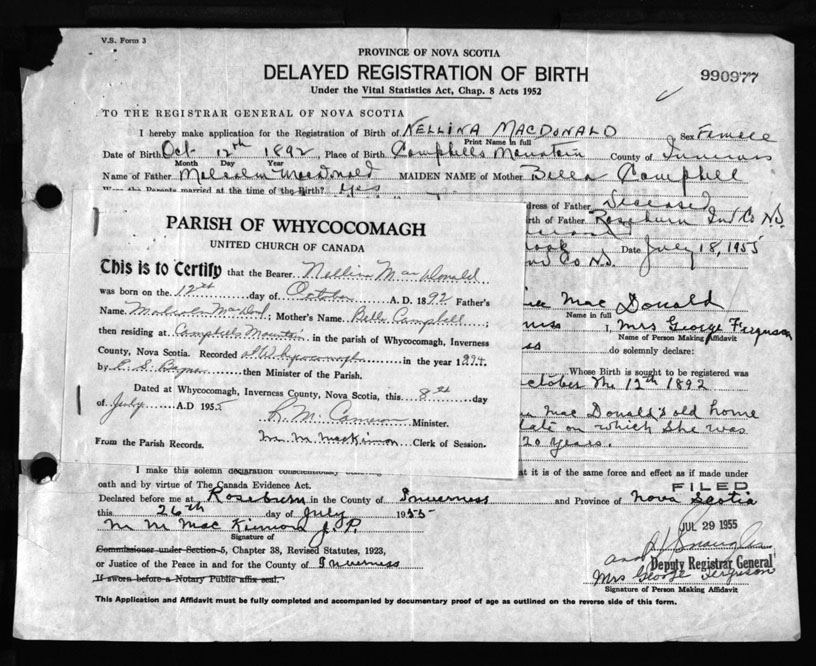 V.S. Form 3
PROVINCE OF NOVA SCOTIA
DELAYED REGISTRATION OF BIRTH
990977
Under the Vital Statistics Act, Chap. 8 Acts 1952
TO THE REGISTRAR GENERAL OF NOVA SCOTIA
I hereby make application for the Registration of Birth of NELLINA MACDONALD Sex Female
Print Name in full
Date of Birth Oct 12th 1892, Place of Birth Campbells Mountain County of Inverness
Month Day Year
Name of Father Malcolm MacDonald MAIDEN NAME of Mother Bella Campbell
Were the Parents married at the time of the Birth? Yes
dress of Father Deceased
rth of Father Roseburn Inv Co N.S.
Date July 18, 1955
Co N.S.
Mac Donald
Name in full
ness I, Mrs George Ferguson
Name of Person Making Affidavit
ss do solemnly declare:
Whose Birth is sought to be registered was
October the 12th 1892
Mac Donald's old home
date on which She was
20 years.
PARISH OF WHYCOCOMAGH
UNITED CHURCH OF CANADA
This is to Certify that the Bearer Nellina MacDonald
was born on the 12th day of October A.D. 1892 Father's
Name Malcolm MacDonald; Mother's Name Belle Campbell;
then residing at Campbells Mountain in the parish of Whycocomagh, Inverness
County, Nova Scotia. Recorded at Whycocomagh in the year 1894.
by then Minister of the Parish.
Dated at Whycocomagh, Inverness County, Nova Scotia, this 8th day
of July A.D 1955
R. M. Cameron Minister.
From the Parish Records. M. MacKinnon Clerk of Session.
I make this solemn declaration conscientiously
at it is of the same force and effect as if made under
oath and by virtue of The Canada Evidence Act.
FILED
Declared before me at Roseburn in the County of Inverness and Province of Nova Scotia
this 26th day of July 1955
M M Mac Kinnon J.P.
JUL 29 1955
Signature of
Commissioner under Section 5, Chapter 38, Revised Statutes, 1923,
or Justice of the Peace in and for the County of Inverness
Deputy Registrar General
If sworn before a Notary Public affix seal.
Mrs George Ferguson
Signature of Person Making Affidavit
This Application and Affidavit must be fully completed and accompanied by documentary proof of age as outlined on the reverse side of this form.